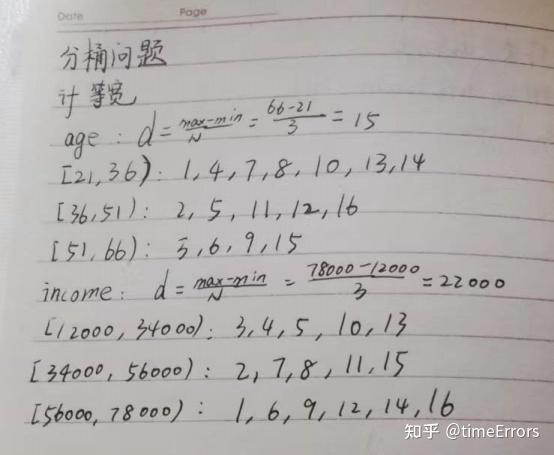 Date Page
分桶问题
计 等宽
age : d = max-min/N = 66-21/3 = 15
[21, 36) : 1, 4, 7, 8, 10, 13, 14
[36, 51) : 2, 5, 11, 12, 16
[51, 66) : 3, 6, 9, 15
income : d = max-min/N = 78000-12000/3 = 22000
[12000, 34000) : 3, 4, 5, 10, 13
[34000, 56000) : 2, 7, 8, 11, 15
[56000, 78000) : 1, 6, 9, 12, 14, 16
知乎 @timeErrors